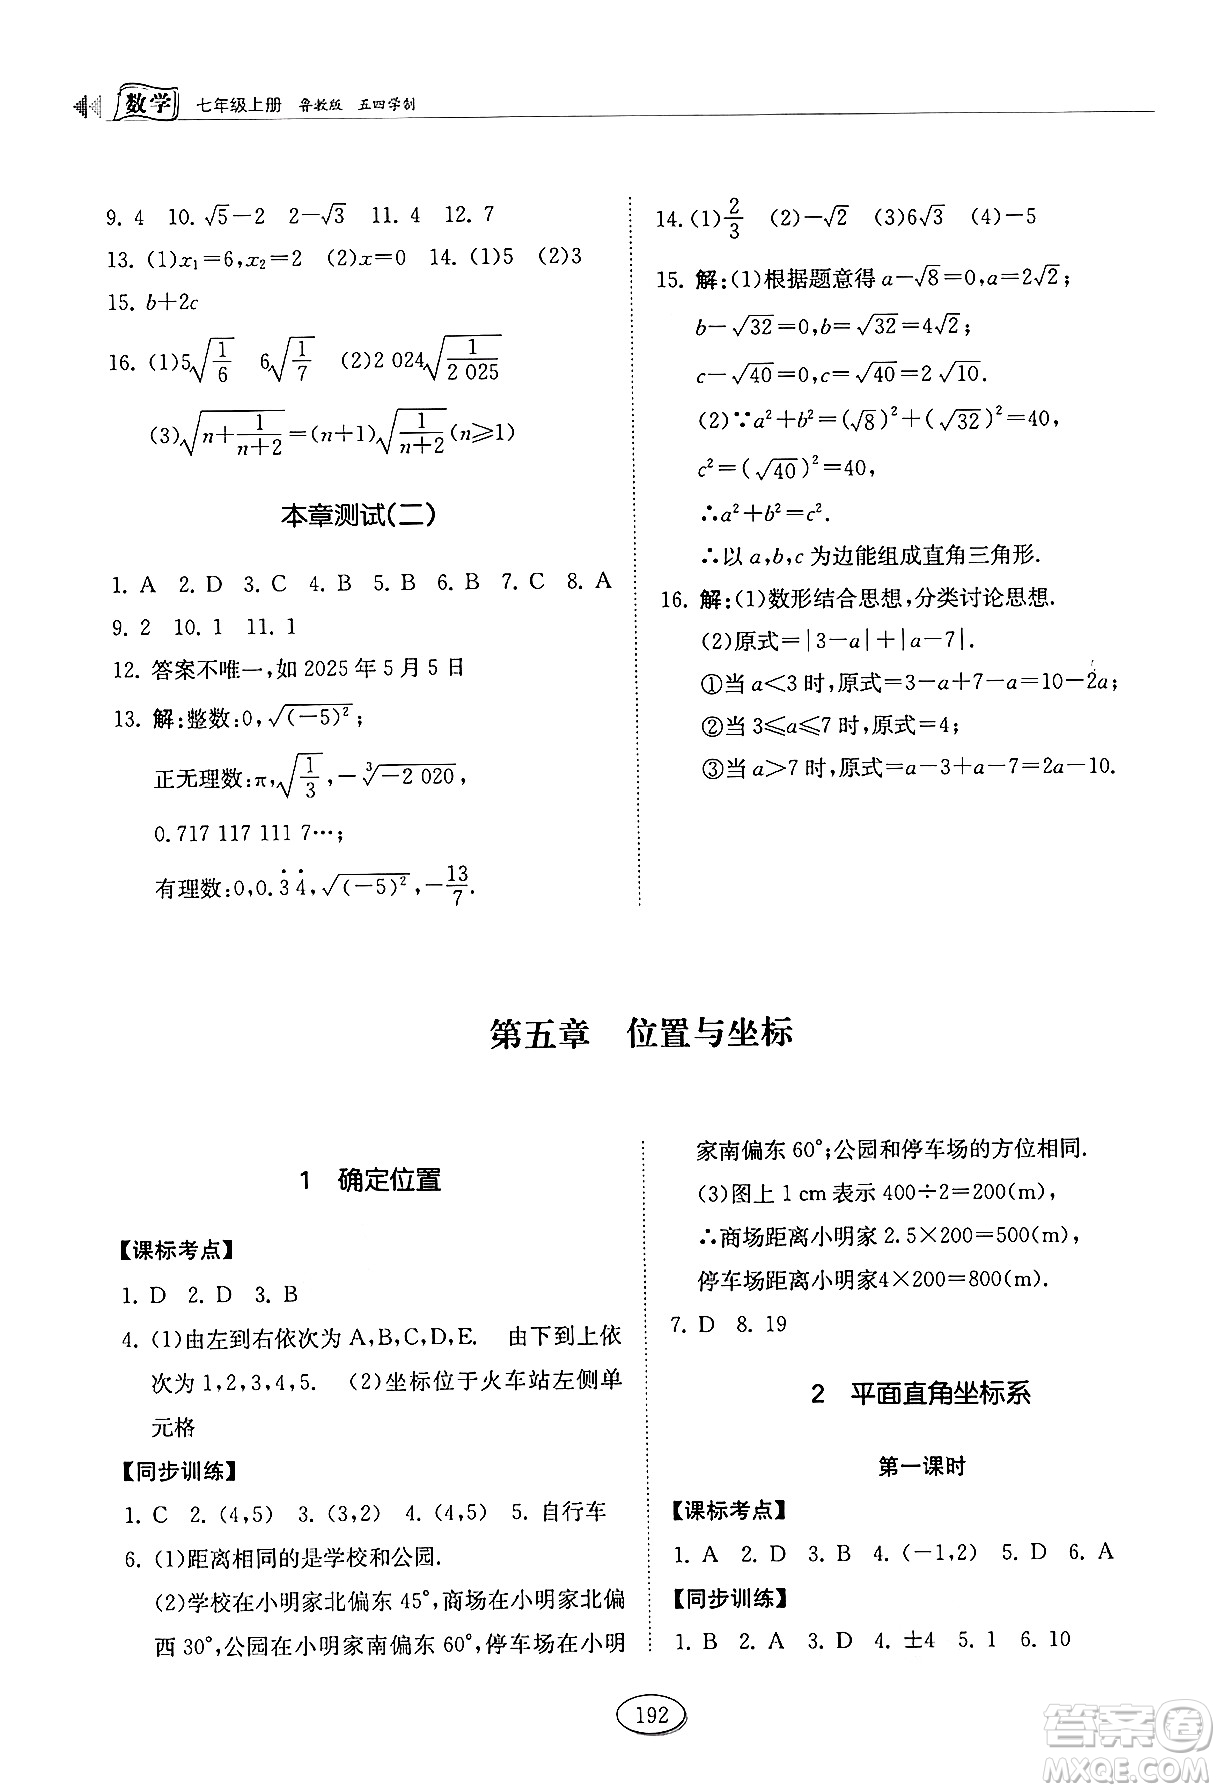 数学 七年级上册 鲁教版 五四学制
9. 4 10. √5－2 2－√3 11. 4 12. 7
13. (1)x₁＝6,x₂＝2 (2)x＝0 14. (1)5 (2)3
15. b＋2c
16. (1)5√(1/6) 6√(1/7) (2)2 024√(1/2 025)
(3)√(n＋1/(n＋2))＝(n＋1)√(1/(n＋2))(n≥1)
本章测试(二)
1. A 2. D 3. C 4. B 5. B 6. B 7. C 8. A
9. 2 10. 1 11. 1
12. 答案不唯一,如 2025 年 5 月 5 日
13. 解:整数:0,√(－5)²;
正无理数:π,√(1/3),－∛－2 020,
0.717 117 111 7…;
有理数:0,0.3̇4̇,√(－5)²,－13/7.
14. (1)2/3 (2)－√2 (3)6√3 (4)－5
15. 解:(1)根据题意得 a－√8＝0,a＝2√2;
b－√32＝0,b＝√32＝4√2;
c－√40＝0,c＝√40＝2√10.
(2)∵a²＋b²＝(√8)²＋(√32)²＝40,
c²＝(√40)²＝40,
∴a²＋b²＝c².
∴以 a,b,c 为边能组成直角三角形.
16. 解:(1)数形结合思想,分类讨论思想.
(2)原式＝|3－a|＋|a－7|.
①当 a＜3 时,原式＝3－a＋7－a＝10－2a;
②当 3≤a≤7 时,原式＝4;
③当 a＞7 时,原式＝a－3＋a－7＝2a－10.
第五章 位置与坐标
1 确定位置
【课标考点】
1. D 2. D 3. B
4. (1)由左到右依次为 A,B,C,D,E. 由下到上依
次为 1,2,3,4,5. (2)坐标位于火车站左侧单
元格
【同步训练】
1. C 2. (4,5) 3. (3,2) 4. (4,5) 5. 自行车
6. (1)距离相同的是学校和公园.
(2)学校在小明家北偏东 45°,商场在小明家北偏
西 30°,公园在小明家南偏东 60°,停车场在小明
家南偏东 60°;公园和停车场的方位相同.
(3)图上 1 cm 表示 400÷2＝200(m),
∴商场距离小明家 2.5×200＝500(m),
停车场距离小明家4×200＝800(m).
7. D 8. 19
2 平面直角坐标系
第一课时
【课标考点】
1. A 2. D 3. B 4. (－1,2) 5. D 6. A
【同步训练】
1. B 2. A 3. D 4. ±4 5. 1 6. 10
192
答案卷
MXQE.COM